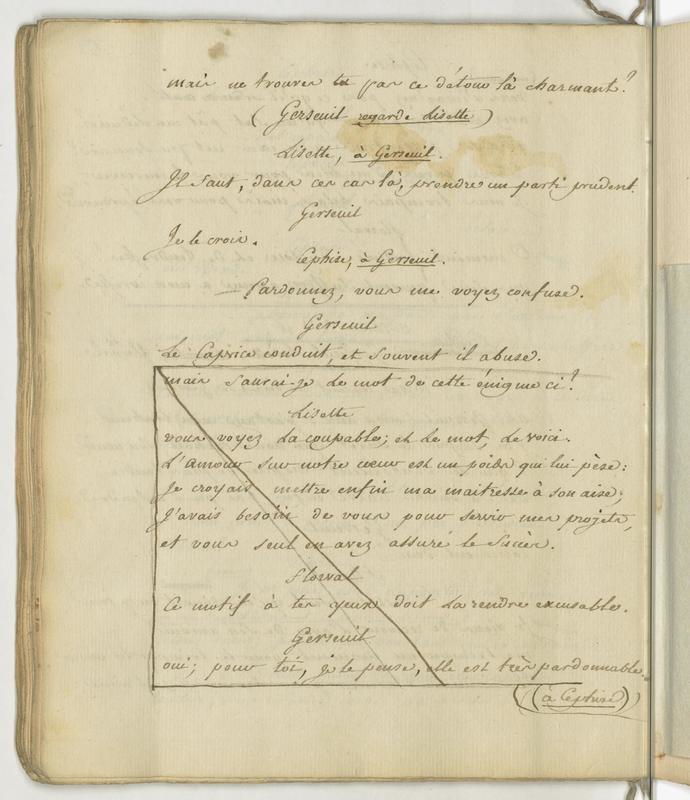 mais ne trouves tu pas ce détour là charmant?
(Gerseuil regarde Lisette)
Lisette, à Gerseuil.
Il faut, dans ces cas là, prendre un parti prudent.
Gerseuil
Je le crois.
Cephise, à Gerseuil.
Pardonnez, vous me voyez confuse.
Gerseuil
Le Caprice conduit, et souvent il abuse.
mais saurai-je le mot de cette énigme ci?
Lisette
vous voyez la coupable; et le mot, le voici.
L'amour sur notre cœur est un poids qui lui pèse:
Je croyais mettre enfin ma maitresse à son aise;
J'avais besoin de vous pour servir mes projets,
et vous seul en avez assuré le succès.
Florval
Ce motif à tes yeux doit la rendre excusable.
Gerseuil
oui; pour toi, je le pense, elle est très pardonnable.
(à Cephise)